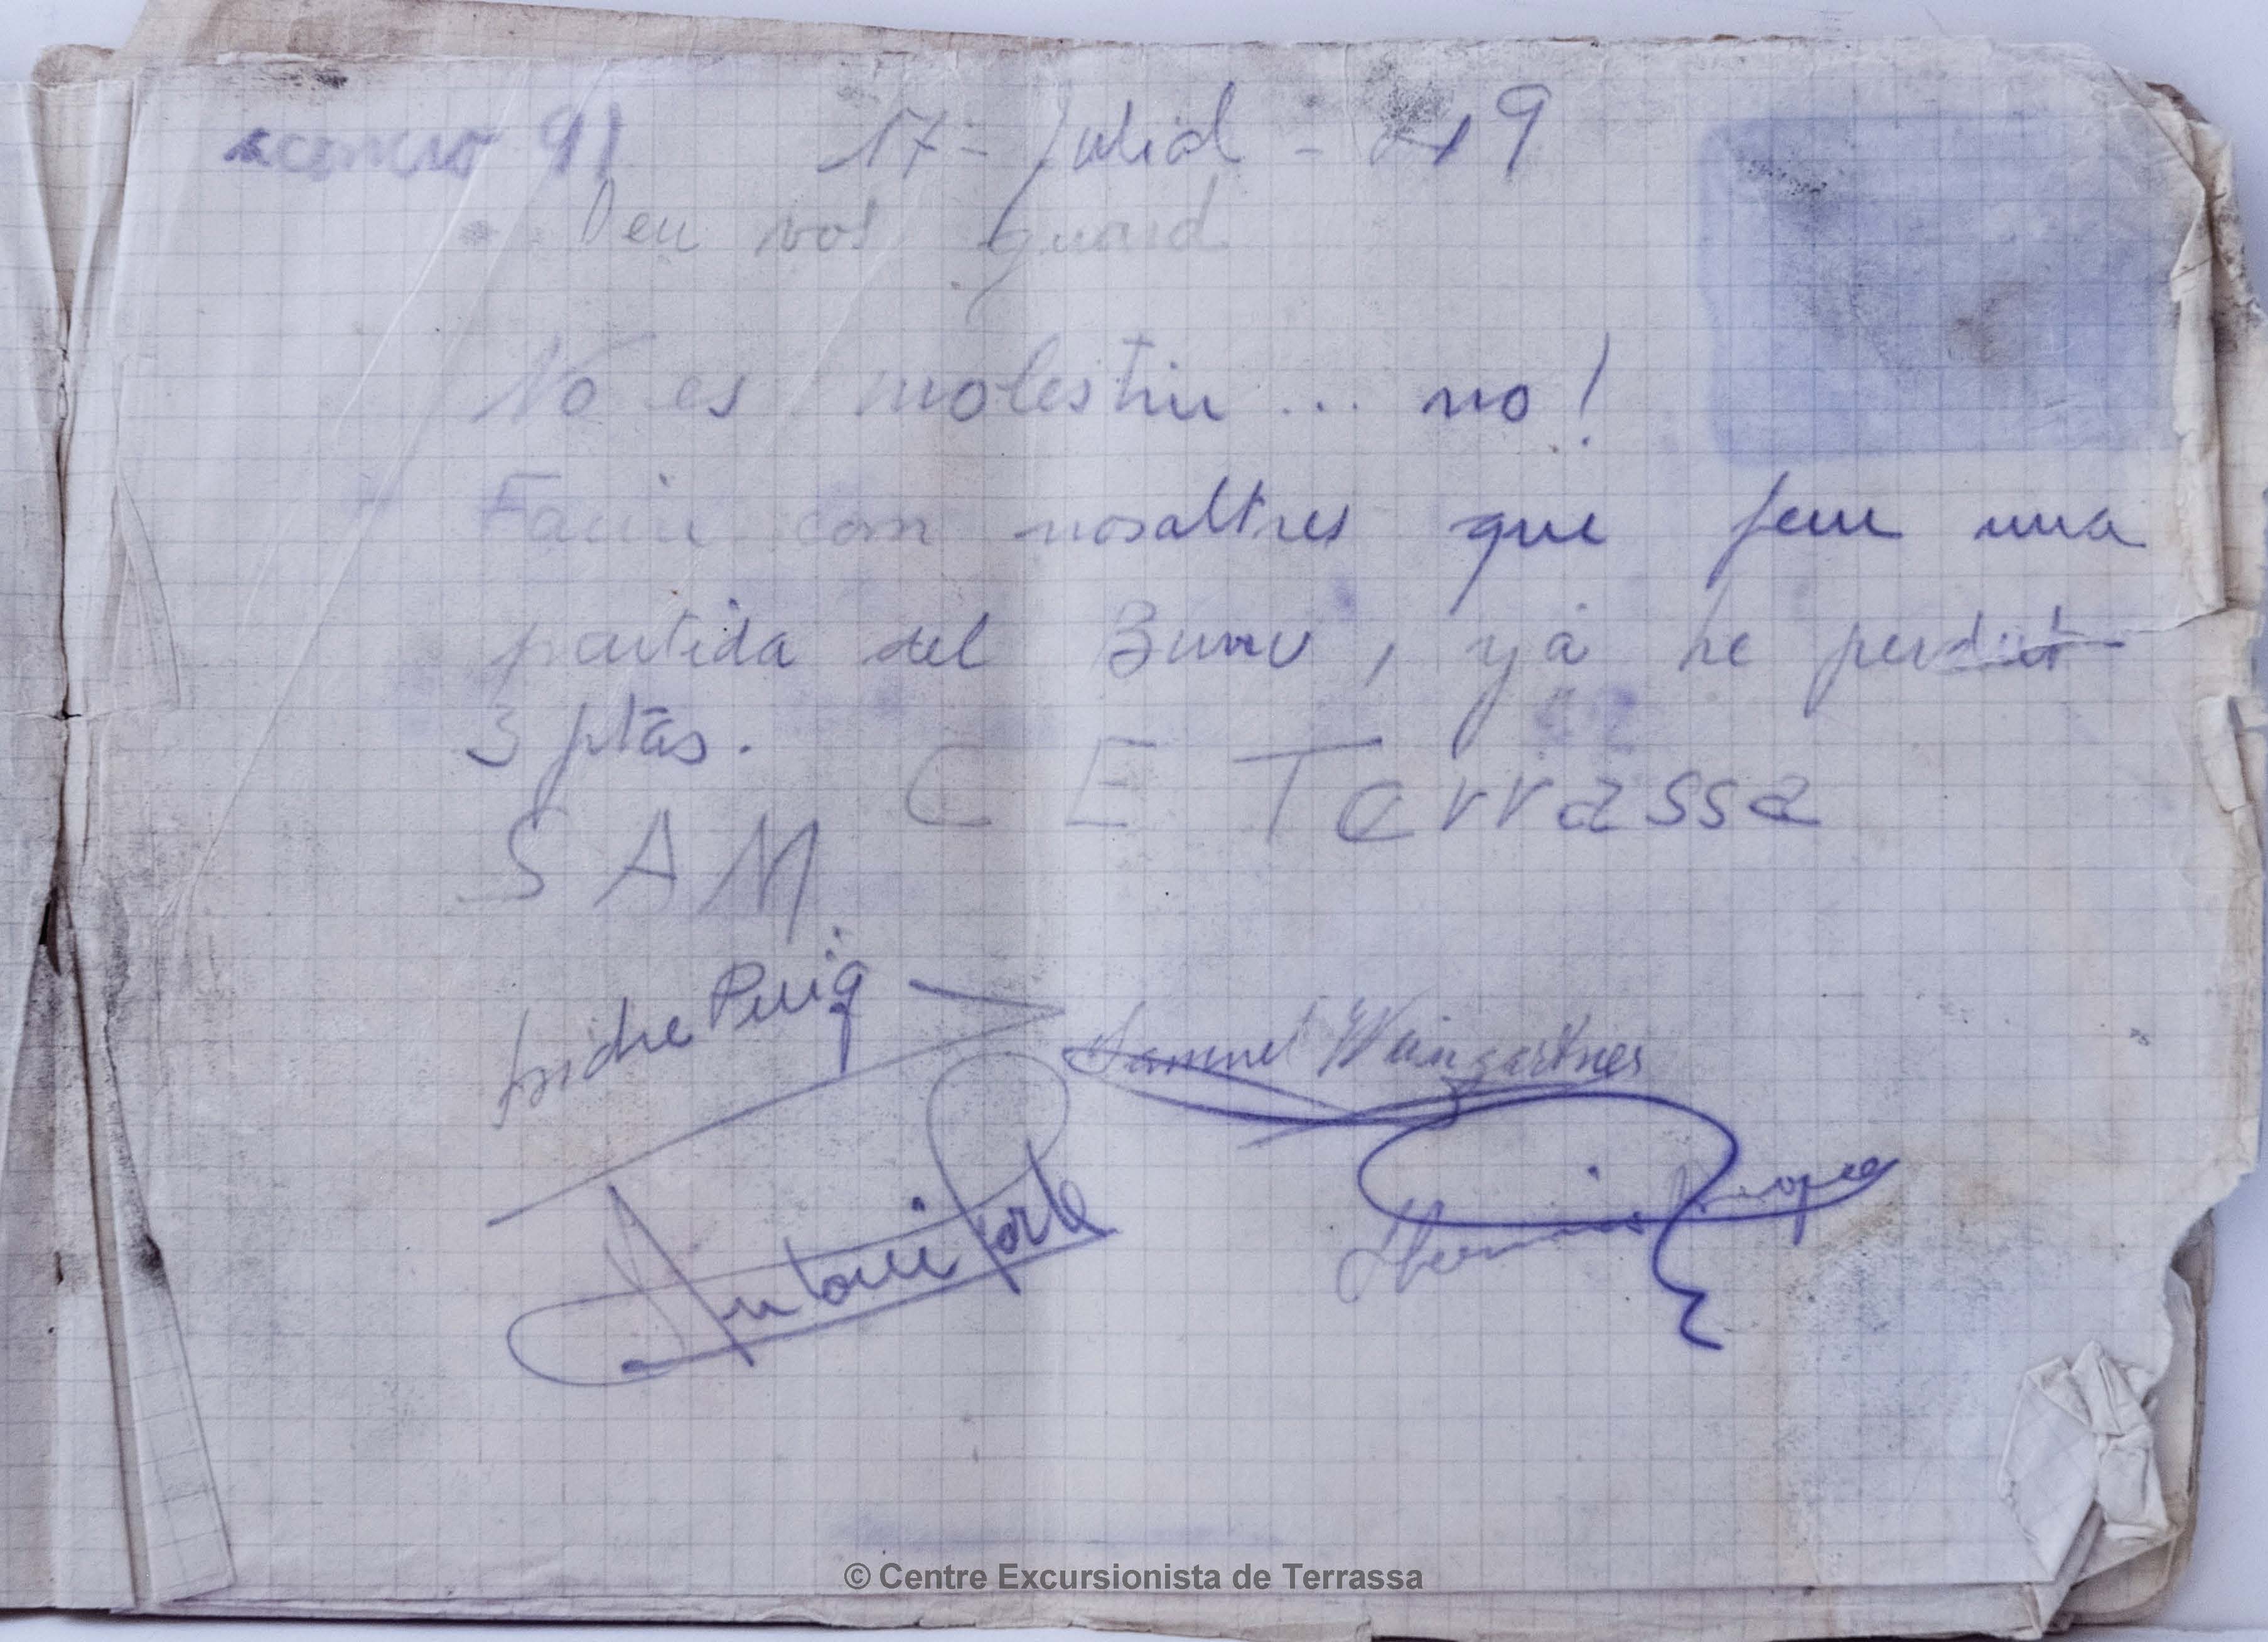 91 17 - Juliol - 49
Deu vos guard
No es molestin ... no!
Facin com nosaltres que fem una
partida del Burru, ya he perdut
3 ptas.
C E Terrassa
S A M
Isidre Puig
Samuel Weingartner
Antoni Porta
© Centre Excursionista de Terrassa